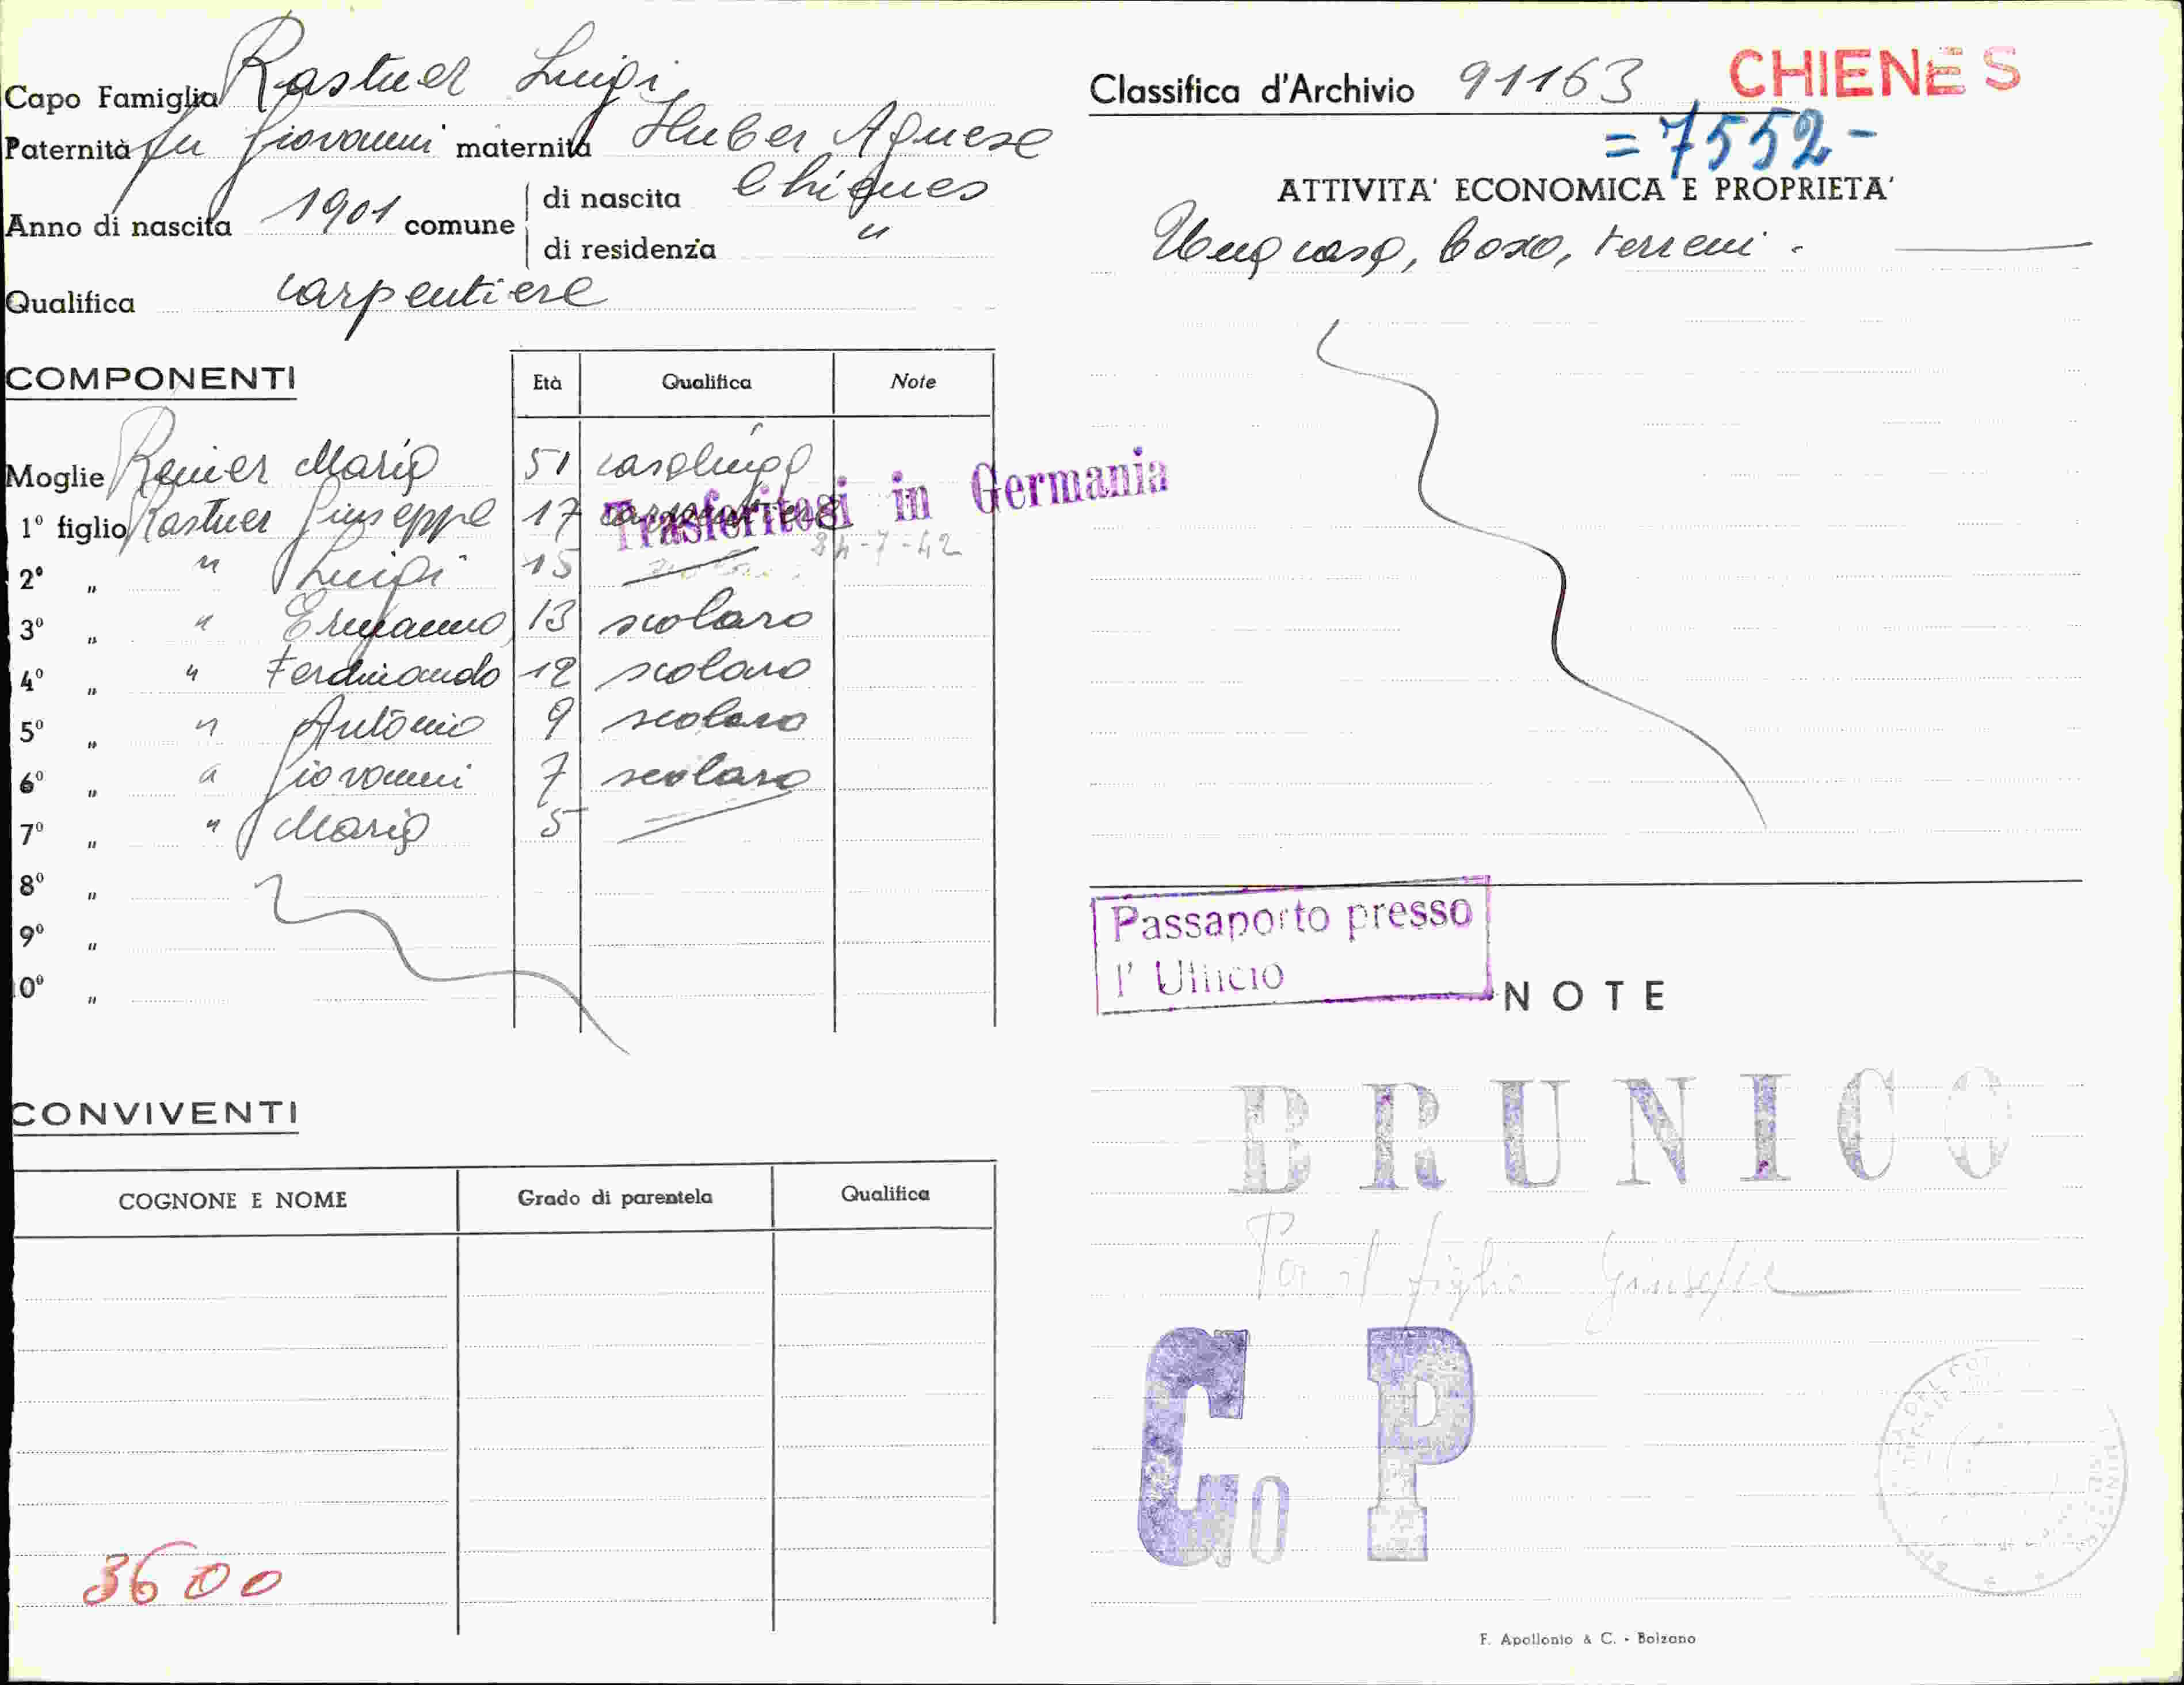 Capo Famiglia Kastner Luigi
Paternità fu Giovanni maternità Huber Agnese
Anno di nascita 1901 comune di nascita Chienes
di residenza "
Qualifica carpentiere
COMPONENTI Età Qualifica Note
Moglie Renier Maria 51 casalinga
1º figlio Kastner Giuseppe 17
Trasferitosi in Germania
24-7-42
2º " " Luigi 15
3º " " Ermanno 13 scolaro
4º " " Ferdinando 12 scolaro
5º " " Antonio 9 scolaro
6º " " Giovanni 7 scolaro
7º " " Maria 5
8º "
9º "
0º "
CONVIVENTI
COGNONE E NOME Grado di parentela Qualifica
3600
Classifica d'Archivio 91163 CHIENES
=7552-
ATTIVITA' ECONOMICA E PROPRIETA'
Una casa, bosco, terreni.
Passaporto presso
l' Ufficio
NOTE
BRUNICO
Per il figlio Giuseppe
Co P
F. Apollonio & C. - Bolzano